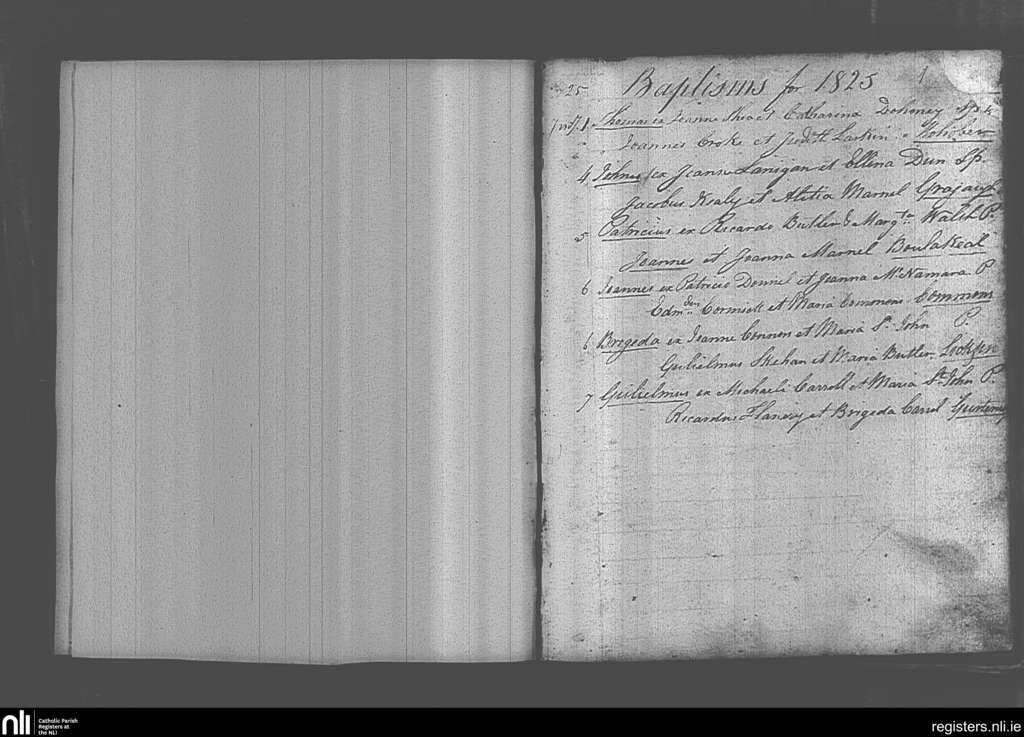 25 Baptisms for 1825 1
1 Thomas ex Joanne Shea et Catharina Dohoney Sp.
Joannes Croke et Judth Larkin
4 Johnes ex Joanne Lanigan et Ellena Dun Sp.
Jacobus Kealy et Alitia Marnel
5 Patricius ex Ricardo Butler & Margta Walsh P.
Joannes et Joanna Marnel Boulakeal
6 Joannes ex Patricio Donnel et Joanna McNamara P
Edmdus Cormick et Maria Commons Commons
6 Brigeda ex Joanne Connors et Maria St John P.
Gulielmus Skehan et Maria Butler
7 Gulielmus ex Michaele Carroll et Maria St John P.
Ricardus Flanery et Brigeda Carrol
nli
Catholic Parish
Registers at
the NLI
registers.nli.ie